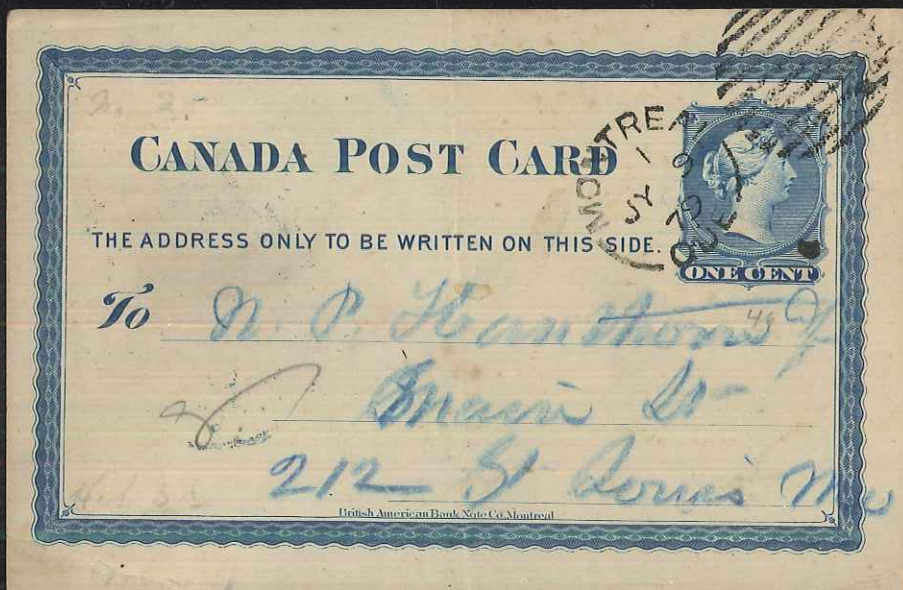 CANADA POST CARD
MONTREAL
1
JY 9
79
QUE
ONE CENT
THE ADDRESS ONLY TO BE WRITTEN ON THIS SIDE.
To N. P.
Main St
212 St Louis Mo
British American Bank Note Co. Montreal